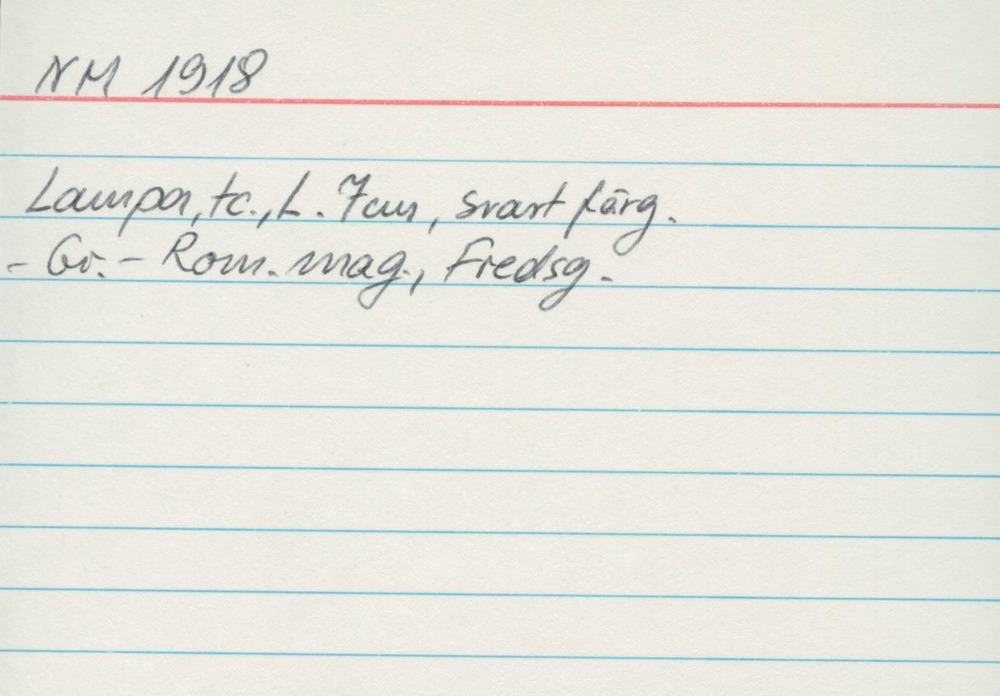 NM 1918
Lampa, tc., L. 7cm, svart färg.
- Gr. - Rom. mag., Fredsg.